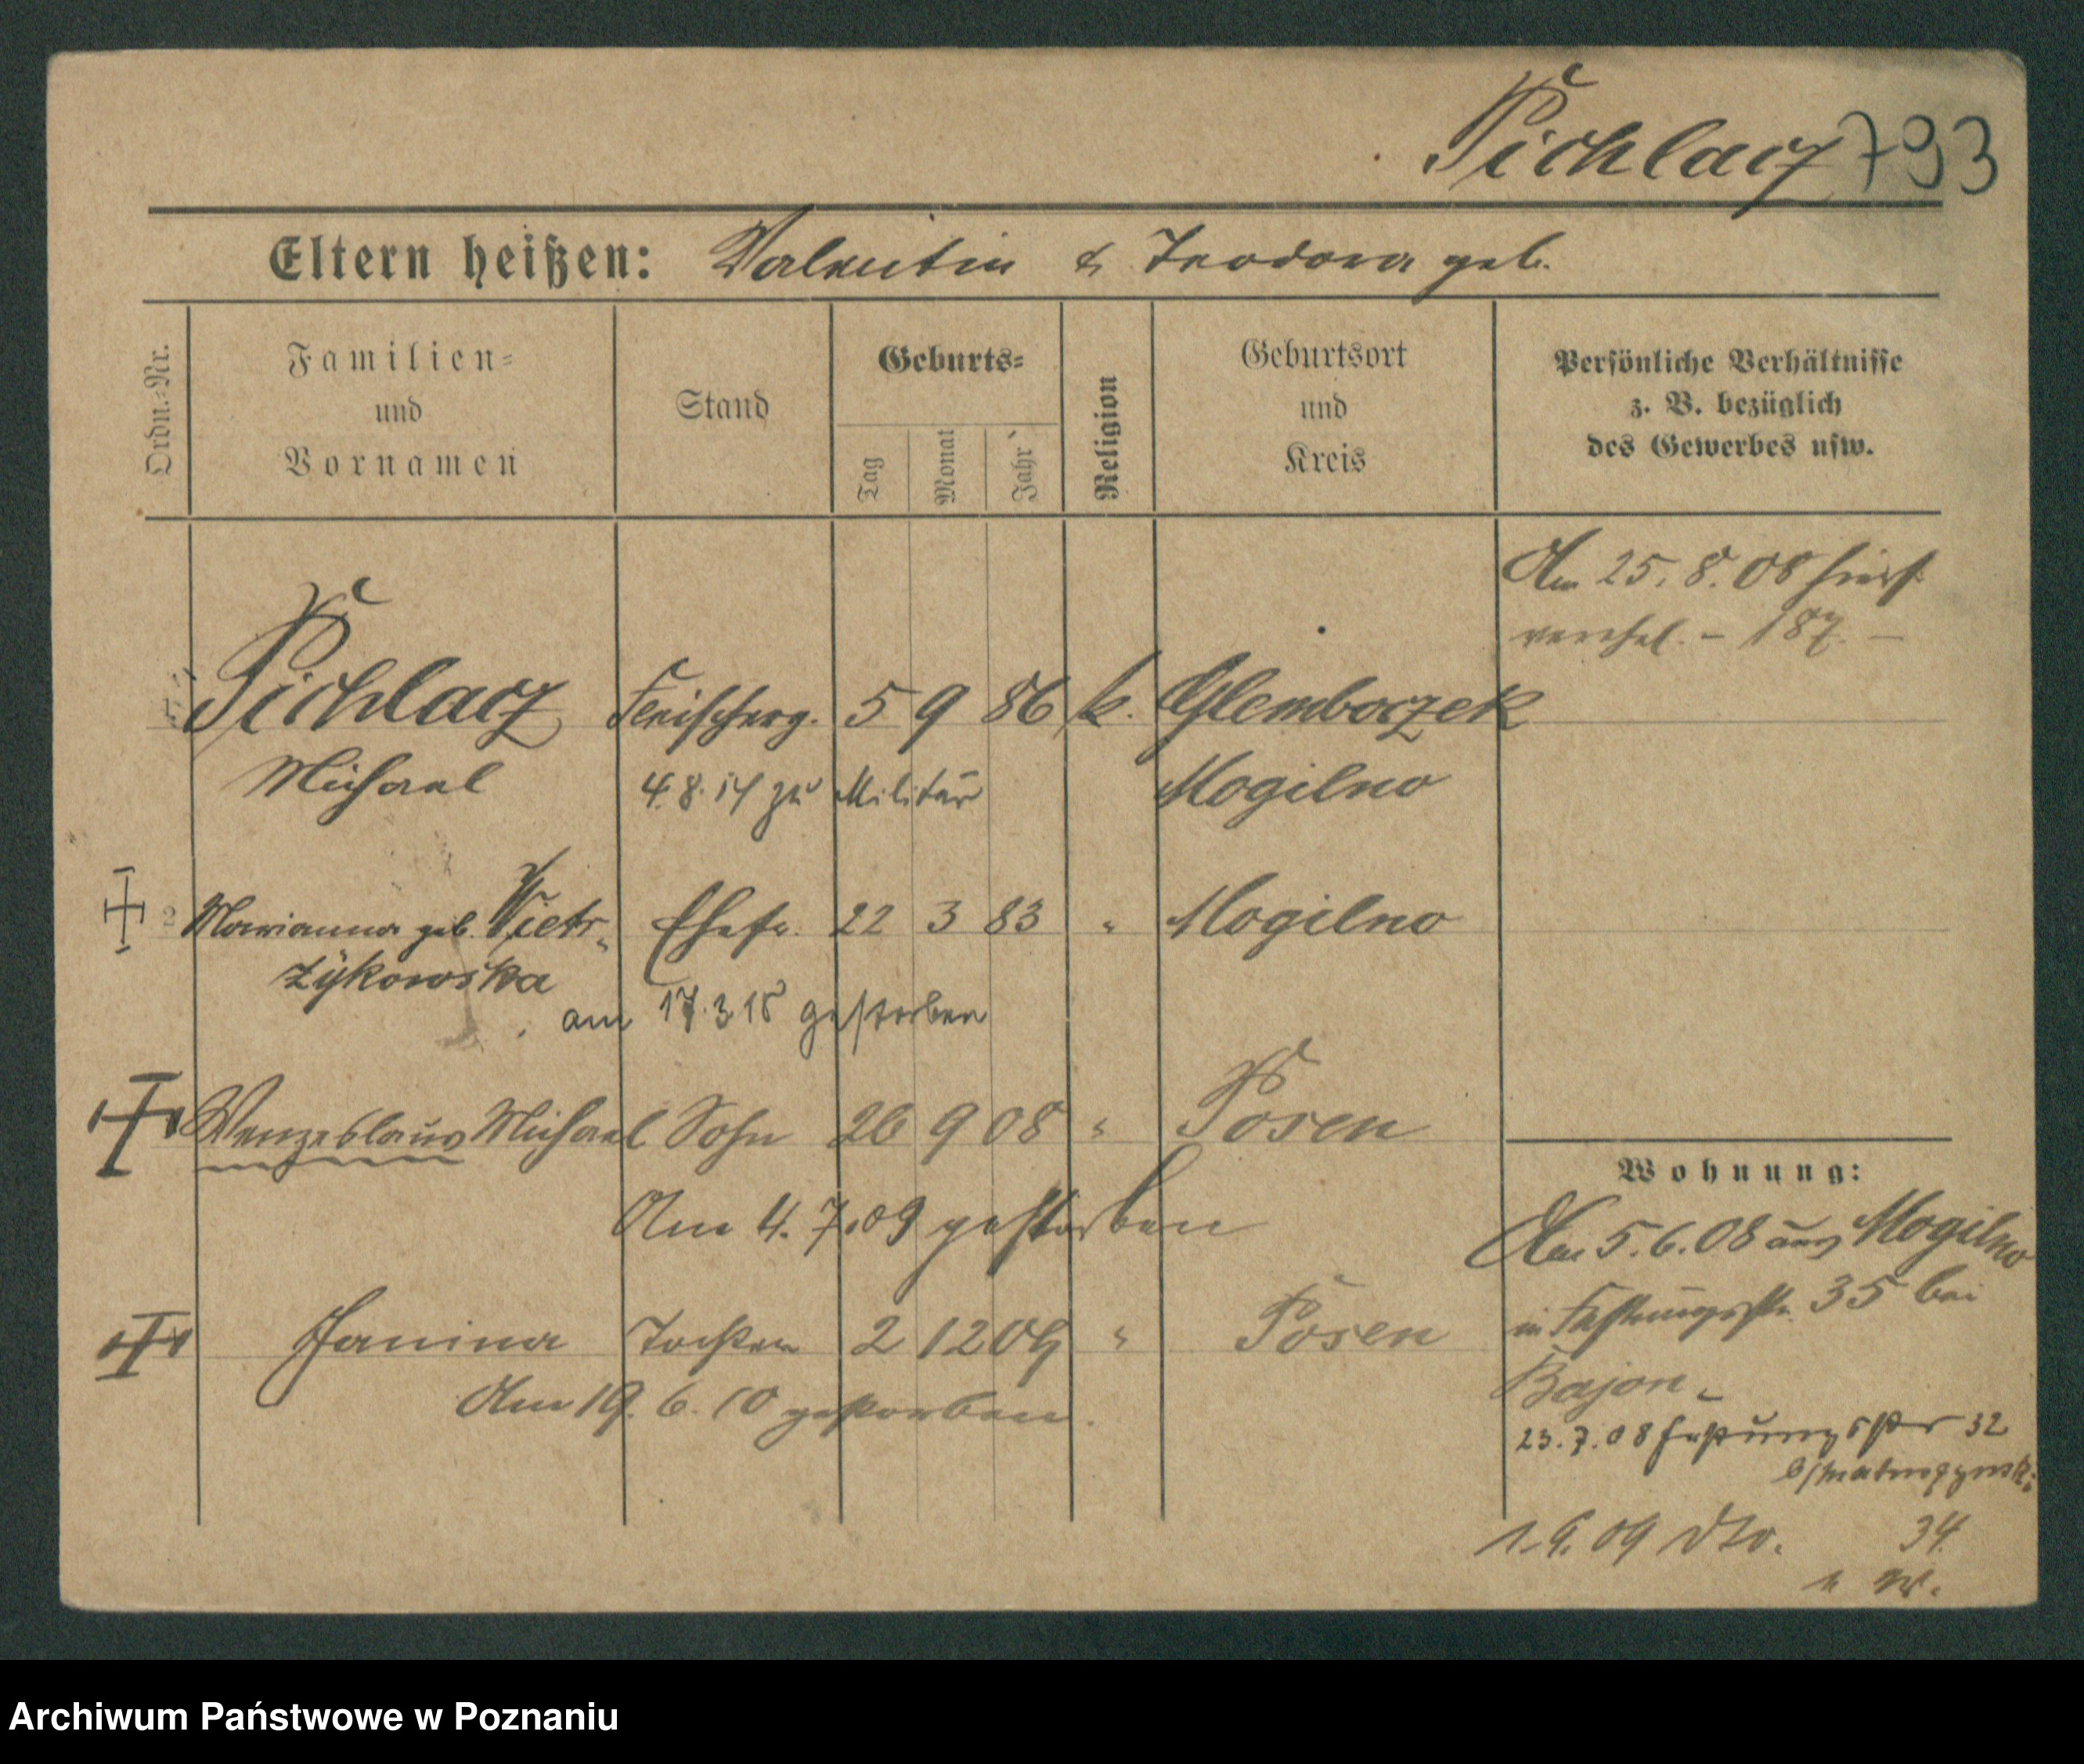 Pichlacz 793
Eltern heißen: Valentin & Teodora geb.
Ordn.-Nr.
Familien-
und
Vornamen
Stand
Geburts-
Tag
Monat
Jahr
Religion
Geburtsort
und
Kreis
Persönliche Verhältnisse
z. B. bezüglich
des Gewerbes usw.
Am 25. 8. 08 hiers.
verehel. – 187. –
Pichlacz 5 9 86 k. Glemboczek
Michael 4.8.14 zu Militär Mogilno
2 Marianna geb. Wietr- Ehefr. 22 3 83 " Mogilno
zykowska
am 17.3.18 gestorben
Wenzeslaus Michael Sohn 26 9 08 " Posen
Am 4. 7. 09 gestorben
Janina Tochter 2 12 09 " Posen
Am 19. 6. 10 gestorben.
Wohnung:
Am 5. 6. 08 aus Mogilno
in Festungsstr. 35 bei
Bajon.
23.7.08 Festungsstr 32
1.9.09 dto. 34